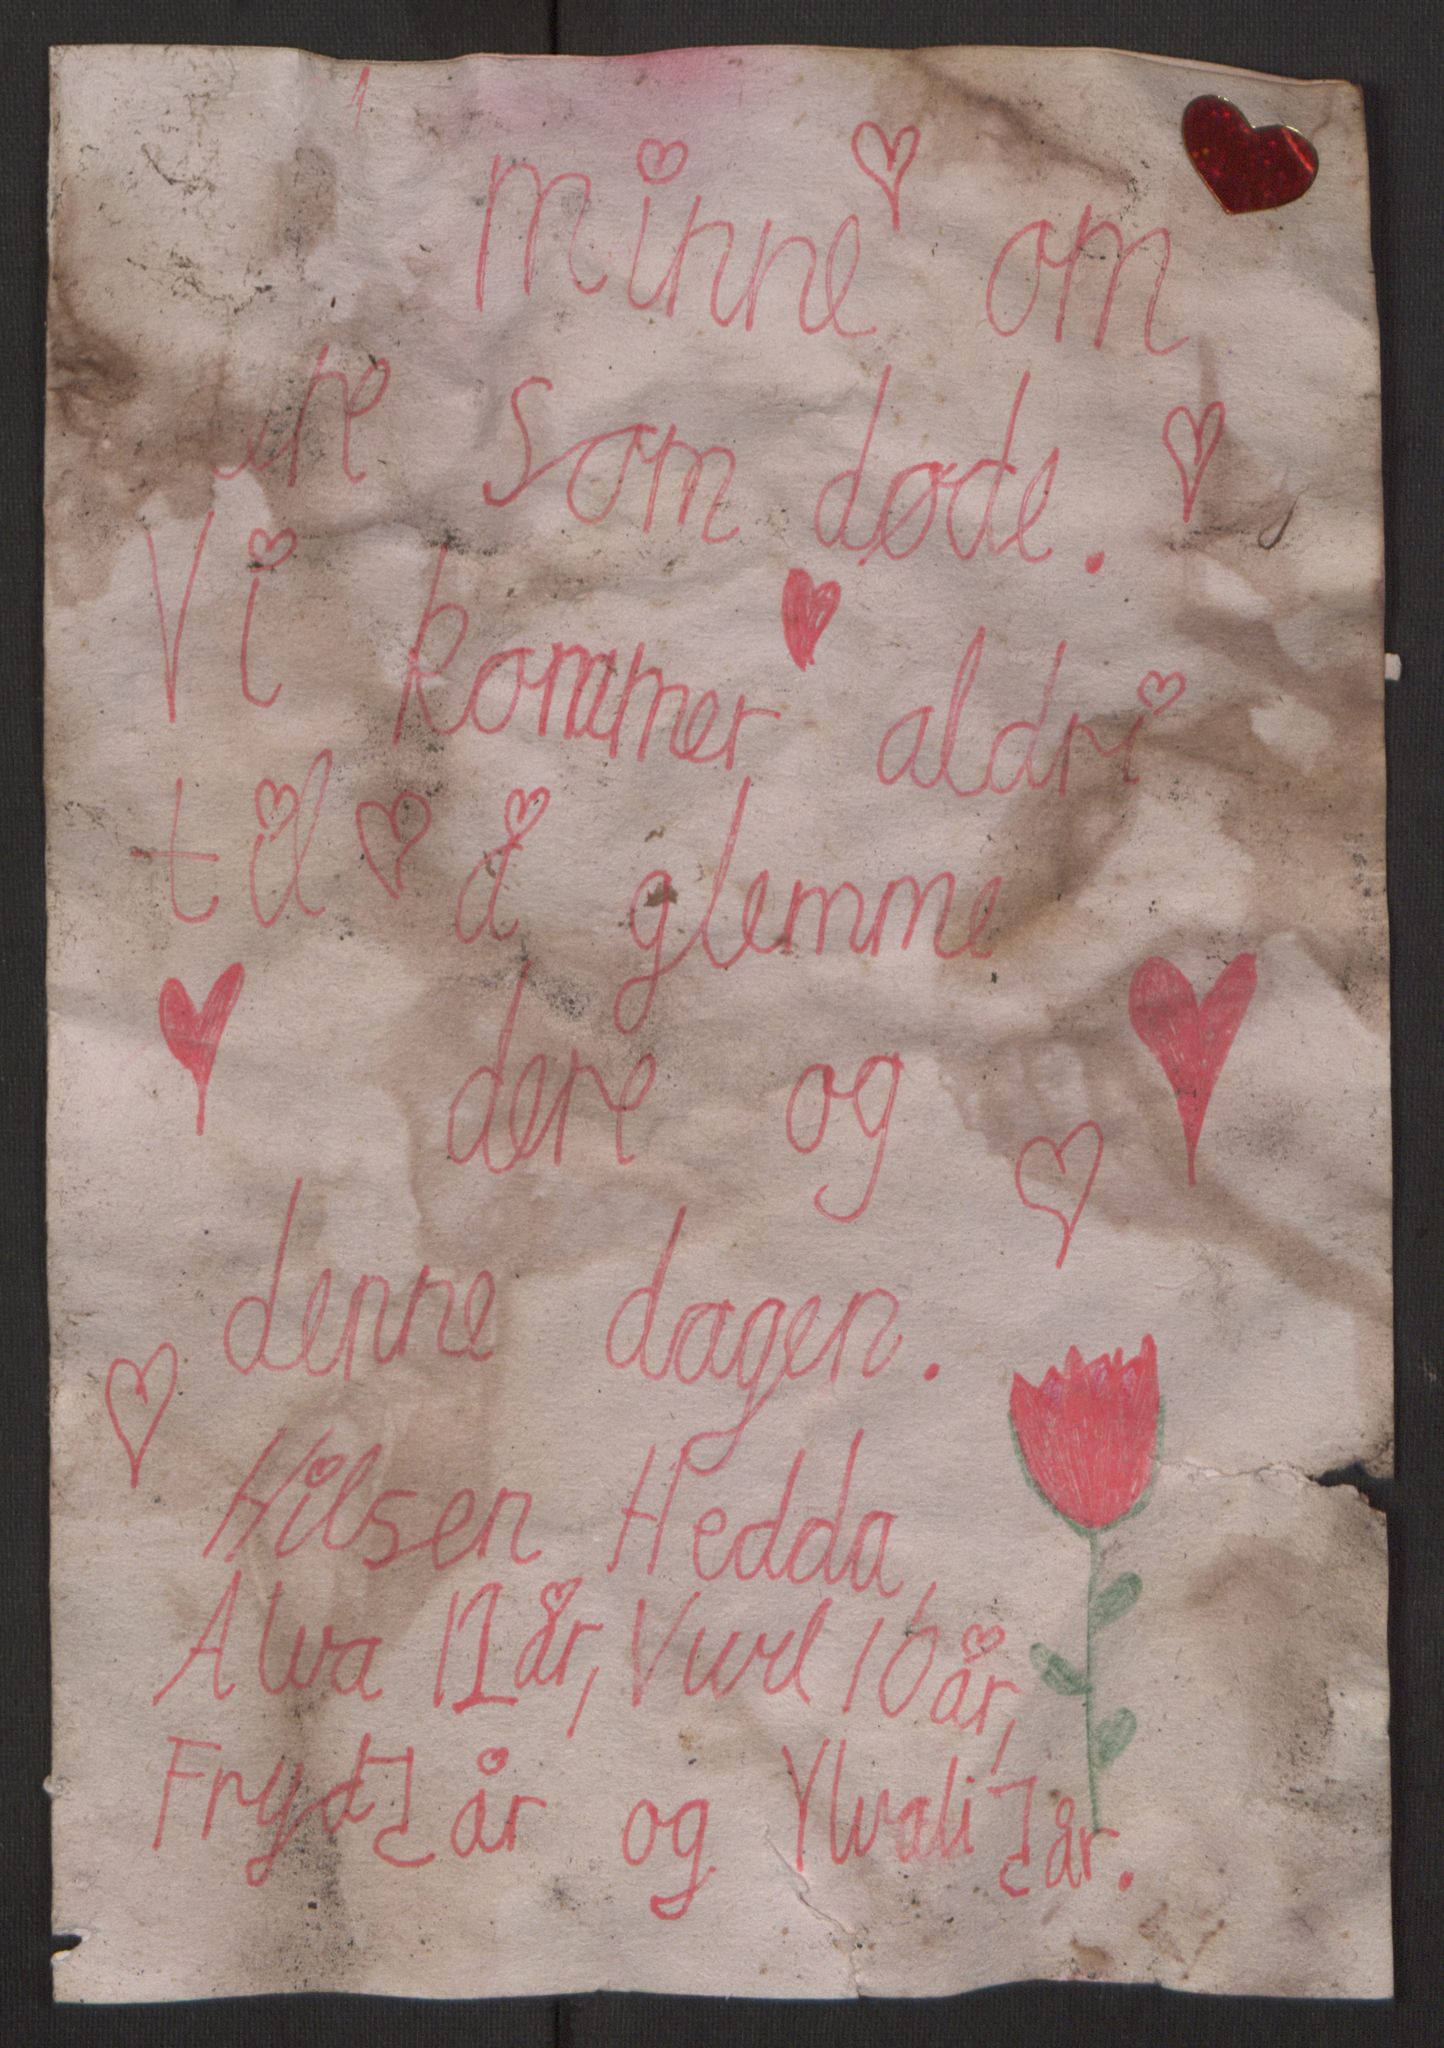 minne om
som døde.
Vi kommer aldri
til å glemme
dere og
denne dagen.
Hilsen Hedda,
Alva 11 år, 10 år,
Fryd år og Ylvali år.